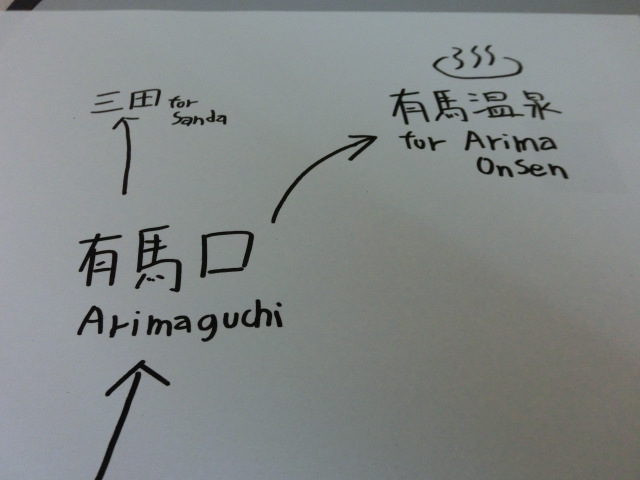 三田 for
Sanda
有馬温泉
for Arima
Onsen
有馬口
Arimaguchi